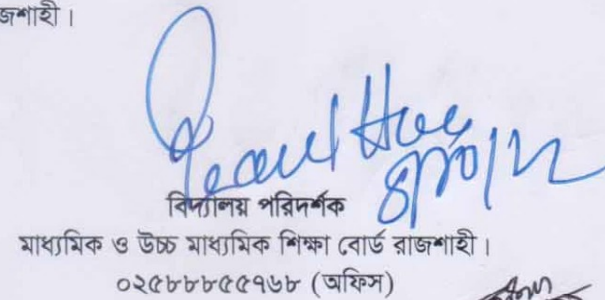 জশাহী।
বিদ্যালয় পরিদর্শক
মাধ্যমিক ও উচ্চ মাধ্যমিক শিক্ষা বোর্ড রাজশাহী।
০২৫৮৮৮৫৫৭৬৮ (অফিস)